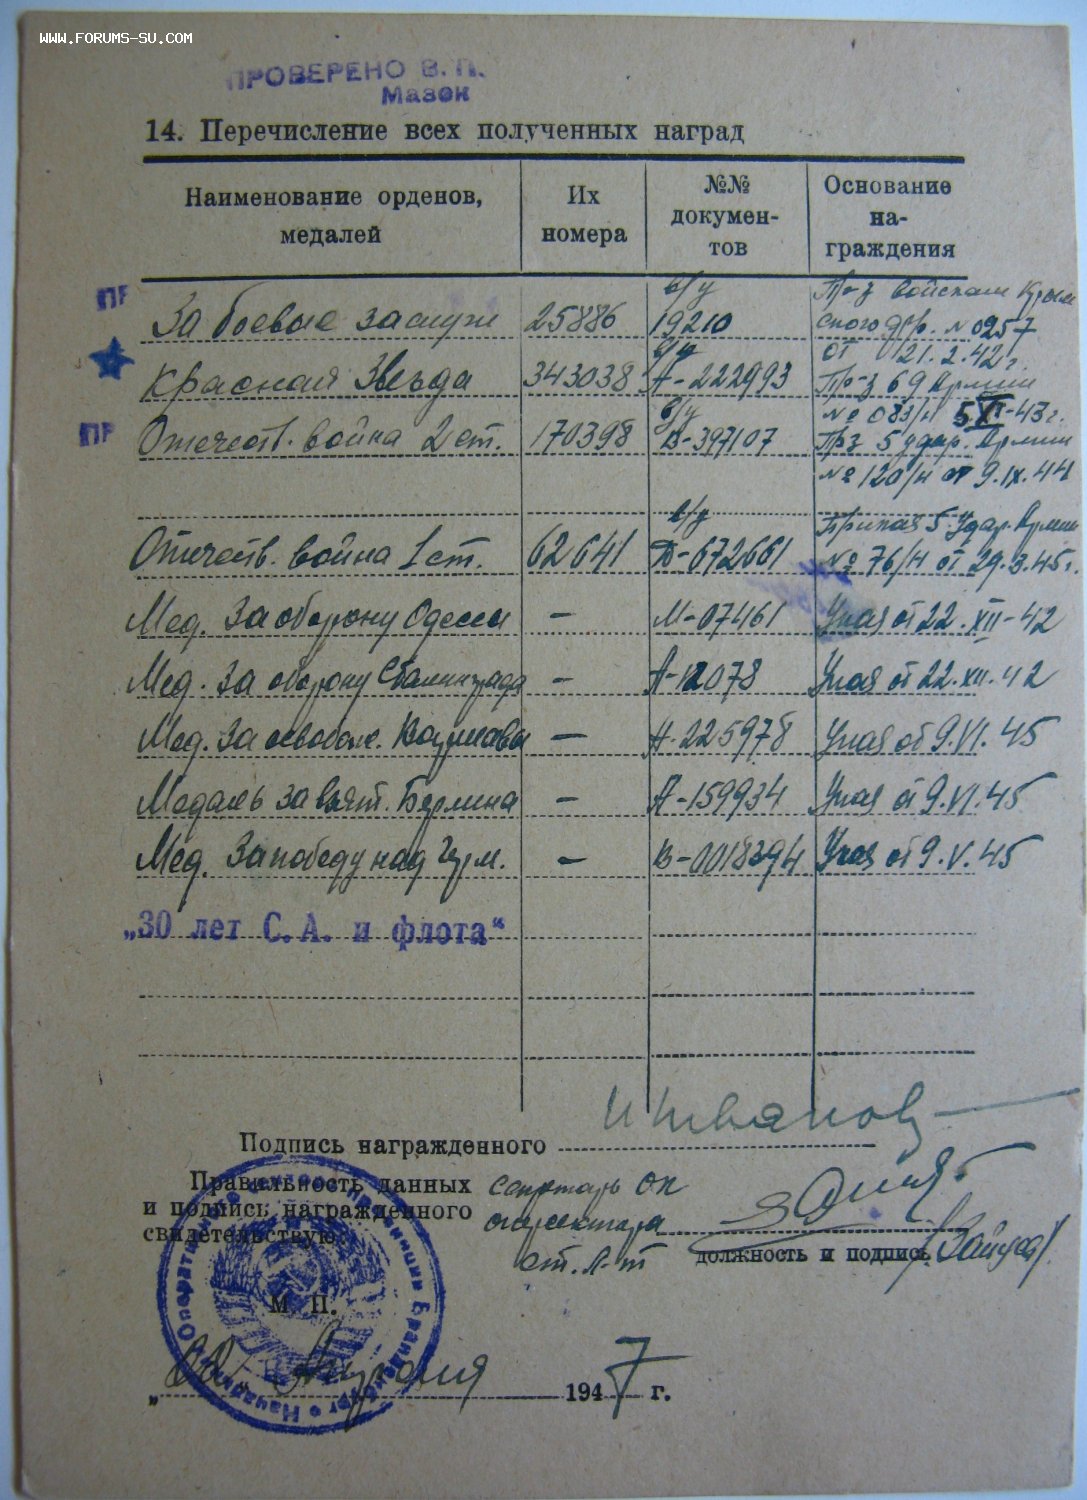 WWW.FORUMS-SU.COM
ПРОВЕРЕНО В. П.
Мазок
14. Перечисление всех полученных наград
Наименование орденов, медалей
Их номера
№№ документов
Основание награждения
За боевые заслуги 25886 в/у 19210 Пр-з войскам Крымского фр. № 0257 от 21.2.42 г.
Красная Звезда 343038 А-222993 Пр-з 69 Армии № 083/н 5.XI-43 г.
Отечеств. война 2 ст. 170398 в/у В-397107 Пр-з 5 удар. Армии № 120/н от 9.IX.44
Отечеств. война 1 ст. 62641 в/у Д-672661 Приказ 5 Удар. Армии № 76/н от 29.3.45 г.
Мед. За оборону Одессы – М-07461 Указ от 22.XII-42
Мед. За оборону Сталинграда – А-12078 Указ от 22.XII.42
Мед. За освобож. Варшавы – А-225978 Указ от 9.VI.45
Медаль за взят. Берлина – А-159934 Указ от 9.VI.45
Мед. За победу над Герм. – В-0018394 Указ от 9.V.45
„30 лет С. А. и флота“
Подпись награжденного
Правильность данных
и подпись награжденного
свидетельствую:
секретарь
ст. л-т
должность и подпись
М. П.
1947 г.